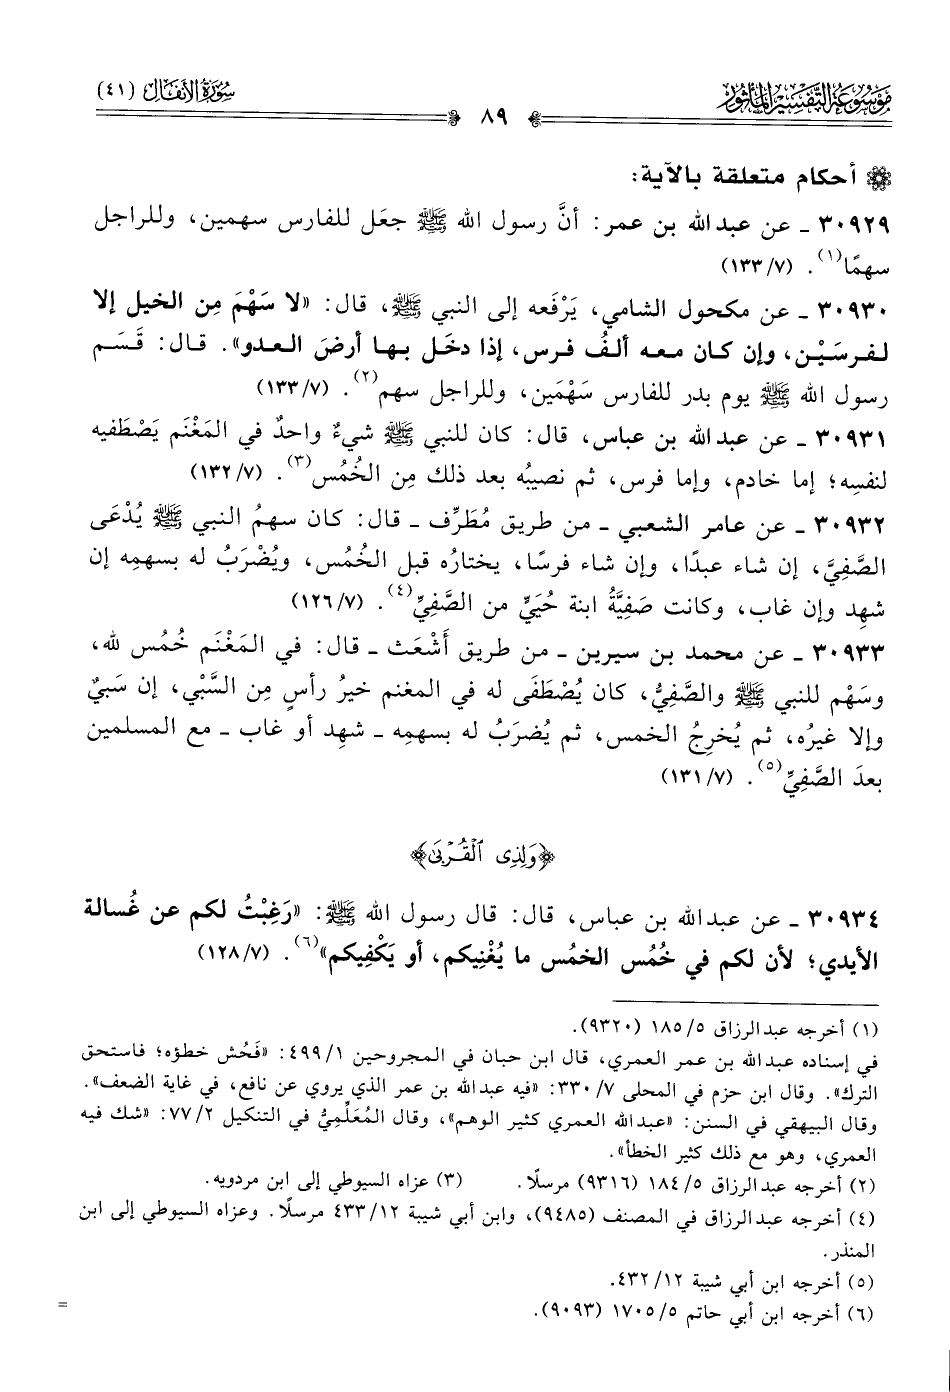 موسوعة التفسير المأثور
سورة الأنفال (٤١)
٨٩
أحكام متعلقة بالآية:
٣٠٩٢٩ ـ عن عبدالله بن عمر: أنَّ رسول الله ﷺ جعَل للفارس سهمين، وللراجل
سهمًا(١). (١٣٣/٧)
٣٠٩٣٠ ـ عن مكحول الشامي، يَرْفَعه إلى النبي ﷺ، قال: «لا سَهْمَ مِن الخيل إلا
لفرسَيْن، وإن كان معه ألفُ فرس، إذا دخَل بها أرضَ العدو». قال: قَسَم
رسول الله ﷺ يوم بدر للفارس سَهْمَين، وللراجل سهم(٢). (١٣٣/٧)
٣٠٩٣١ ـ عن عبدالله بن عباس، قال: كان للنبي ﷺ شيءٌ واحدٌ في المَغْنَم يَصْطَفيه
لنفسِه؛ إما خادم، وإما فرس، ثم نصيبُه بعد ذلك مِن الخُمُس(٣). (١٣٢/٧)
٣٠٩٣٢ ـ عن عامر الشعبي ـ من طريق مُطَرِّف ـ قال: كان سهمُ النبي ﷺ يُدْعَى
الصَّفِيَّ، إن شاء عبدًا، وإن شاء فرسًا، يختارُه قبل الخُمُس، ويُضْرَبُ له بسهمِه إن
شهِد وإن غاب، وكانت صَفِيَّةُ ابنة حُيَيٍّ من الصَّفِيِّ(٤). (١٢٦/٧)
٣٠٩٣٣ ـ عن محمد بن سيرين ـ من طريق أَشْعَث ـ قال: في المَغْنَم خُمُس لله،
وسَهْم للنبي ﷺ والصَّفِيُّ، كان يُصْطَفَى له في المغنم خيرُ رأسٍ مِن السَّبْي، إن سَبيٌ
وإلا غيرُه، ثم يُخرِجُ الخمس، ثم يُضرَبُ له بسهمِه ـ شهِد أو غاب ـ مع المسلمين
بعدَ الصَّفِيِّ(٥). (١٣١/٧)
﴿وَلِذِى ٱلْقُرْبَىٰ﴾
٣٠٩٣٤ ـ عن عبدالله بن عباس، قال: قال رسول الله ﷺ: «رَغِبْتُ لكم عن غُسالة
الأيدي؛ لأن لكم في خُمُس الخمُس ما يُغْنِيكم، أو يَكْفِيكم»(٦). (١٢٨/٧)
(١) أخرجه عبدالرزاق ١٨٥/٥ (٩٣٢٠).
في إسناده عبدالله بن عمر العمري، قال ابن حبان في المجروحين ٤٩٩/١: «فَحُش خطؤه؛ فاستحق
الترك». وقال ابن حزم في المحلى ٣٣٠/٧: «فيه عبدالله بن عمر الذي يروي عن نافع، في غاية الضعف».
وقال البيهقي في السنن: «عبدالله العمري كثير الوهم»، وقال المُعَلِّميُّ في التنكيل ٧٧/٢: «شك فيه
العمري، وهو مع ذلك كثير الخطأ».
(٢) أخرجه عبدالرزاق ١٨٤/٥ (٩٣١٦) مرسلًا. (٣) عزاه السيوطي إلى ابن مردويه.
(٤) أخرجه عبدالرزاق في المصنف (٩٤٨٥)، وابن أبي شيبة ٤٣٣/١٢ مرسلًا. وعزاه السيوطي إلى ابن
المنذر.
(٥) أخرجه ابن أبي شيبة ٤٣٢/١٢.
(٦) أخرجه ابن أبي حاتم ١٧٠٥/٥ (٩٠٩٣).
=